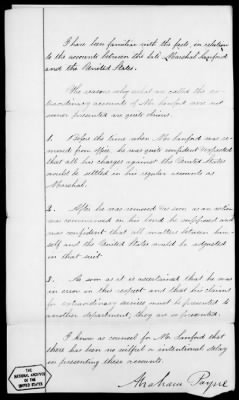 I have been familiar with the facts in relation
to the accounts between the late Marshal Sanford
and the United States.
The reasons why what are called the ex-
traordinary accounts of Mr Sanford were not
sooner presented are quite obvious.
1. Before the time when Mr Sanford was re-
moved from office he was quite confident
that all his charges against the United States
would be settled in his regular accounts as
Marshal.
2. After he was removed as soon as an action
was commenced on his bond he supposed and
was confident that all matters between him-
self and the United States would be adjusted
in that suit
3. As soon as it is ascertained that he was
in error in this respect and that his claims
for extraordinary services must be presented to
another department, they are so presented.
I know as counsel for Mr Sanford that
there has been no wilful or intentional delay
in presenting these accounts.
Abraham Payne
THE
NATIONAL ARCHIVES
OF THE
UNITED STATES